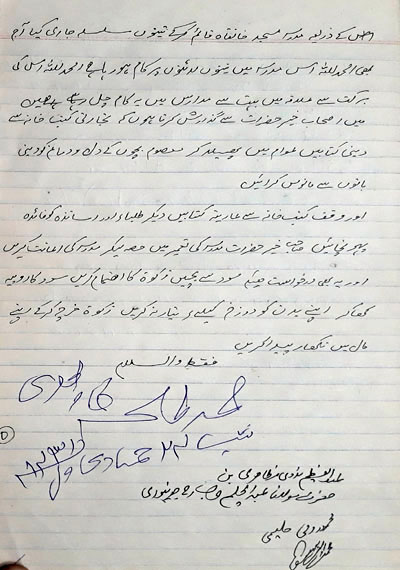 اس کے ذریعہ مدرسہ مسجد خانقاہ قائم کرکے تینوں سلسلہ جاری کیا آج
بھی الحمد للہ اس مدرسہ میں تینوں لائنوں پر کام ہو رہا ہے الحمد للہ اس کی
برکت سے علاقہ میں بہت سے مدارس میں یہ کام چل رہے ہیں
میں اصحاب خیر حضرات سے گذارش کرتا ہوں کہ تجارتی کتب خانہ سے
دینی کتابیں عوام میں پھیلا کر معصوم بچوں کے دل و دماغ کو دینی
باتوں سے مانوس کرائیں
اور وقف کتب خانہ سے عاریۃ کتابیں دیکر طلباء اور اساتذہ کو فائدہ
پہونچائیں صاحب خیر حضرات مدرسہ کی تعمیر میں حصہ لیکر مدرسہ کی اعانت کریں
اور یہ بھی درخواست ہیکہ سود سے بچیں زکوۃ کا اہتمام کریں سود کا روپیہ
کھا کر اپنے بدن کو دوزخ کیلئے تیار نہ کریں زکوۃ خرچ کرکے اپنے
مال میں نکھار پیدا کریں
فقط والسلام
محمد طلحہ
شب ۲۲ جمادی
عبد العظیم ندوی مظاہری بن
حضرت مولانا عبد الحلیم صاحب جونپوری